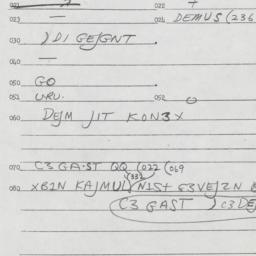 021 022 +
023 — 024 DEMUS (236
030 ) DI GEJGNT .
040 —
050 GO .
051 URU. 052 O
060 DEJM JIT KON3X
070 C3 GA·ST QQ (022 (069
(332
080 XBIN KAJMUL NIST
C3 GAST ) C3 DEJ